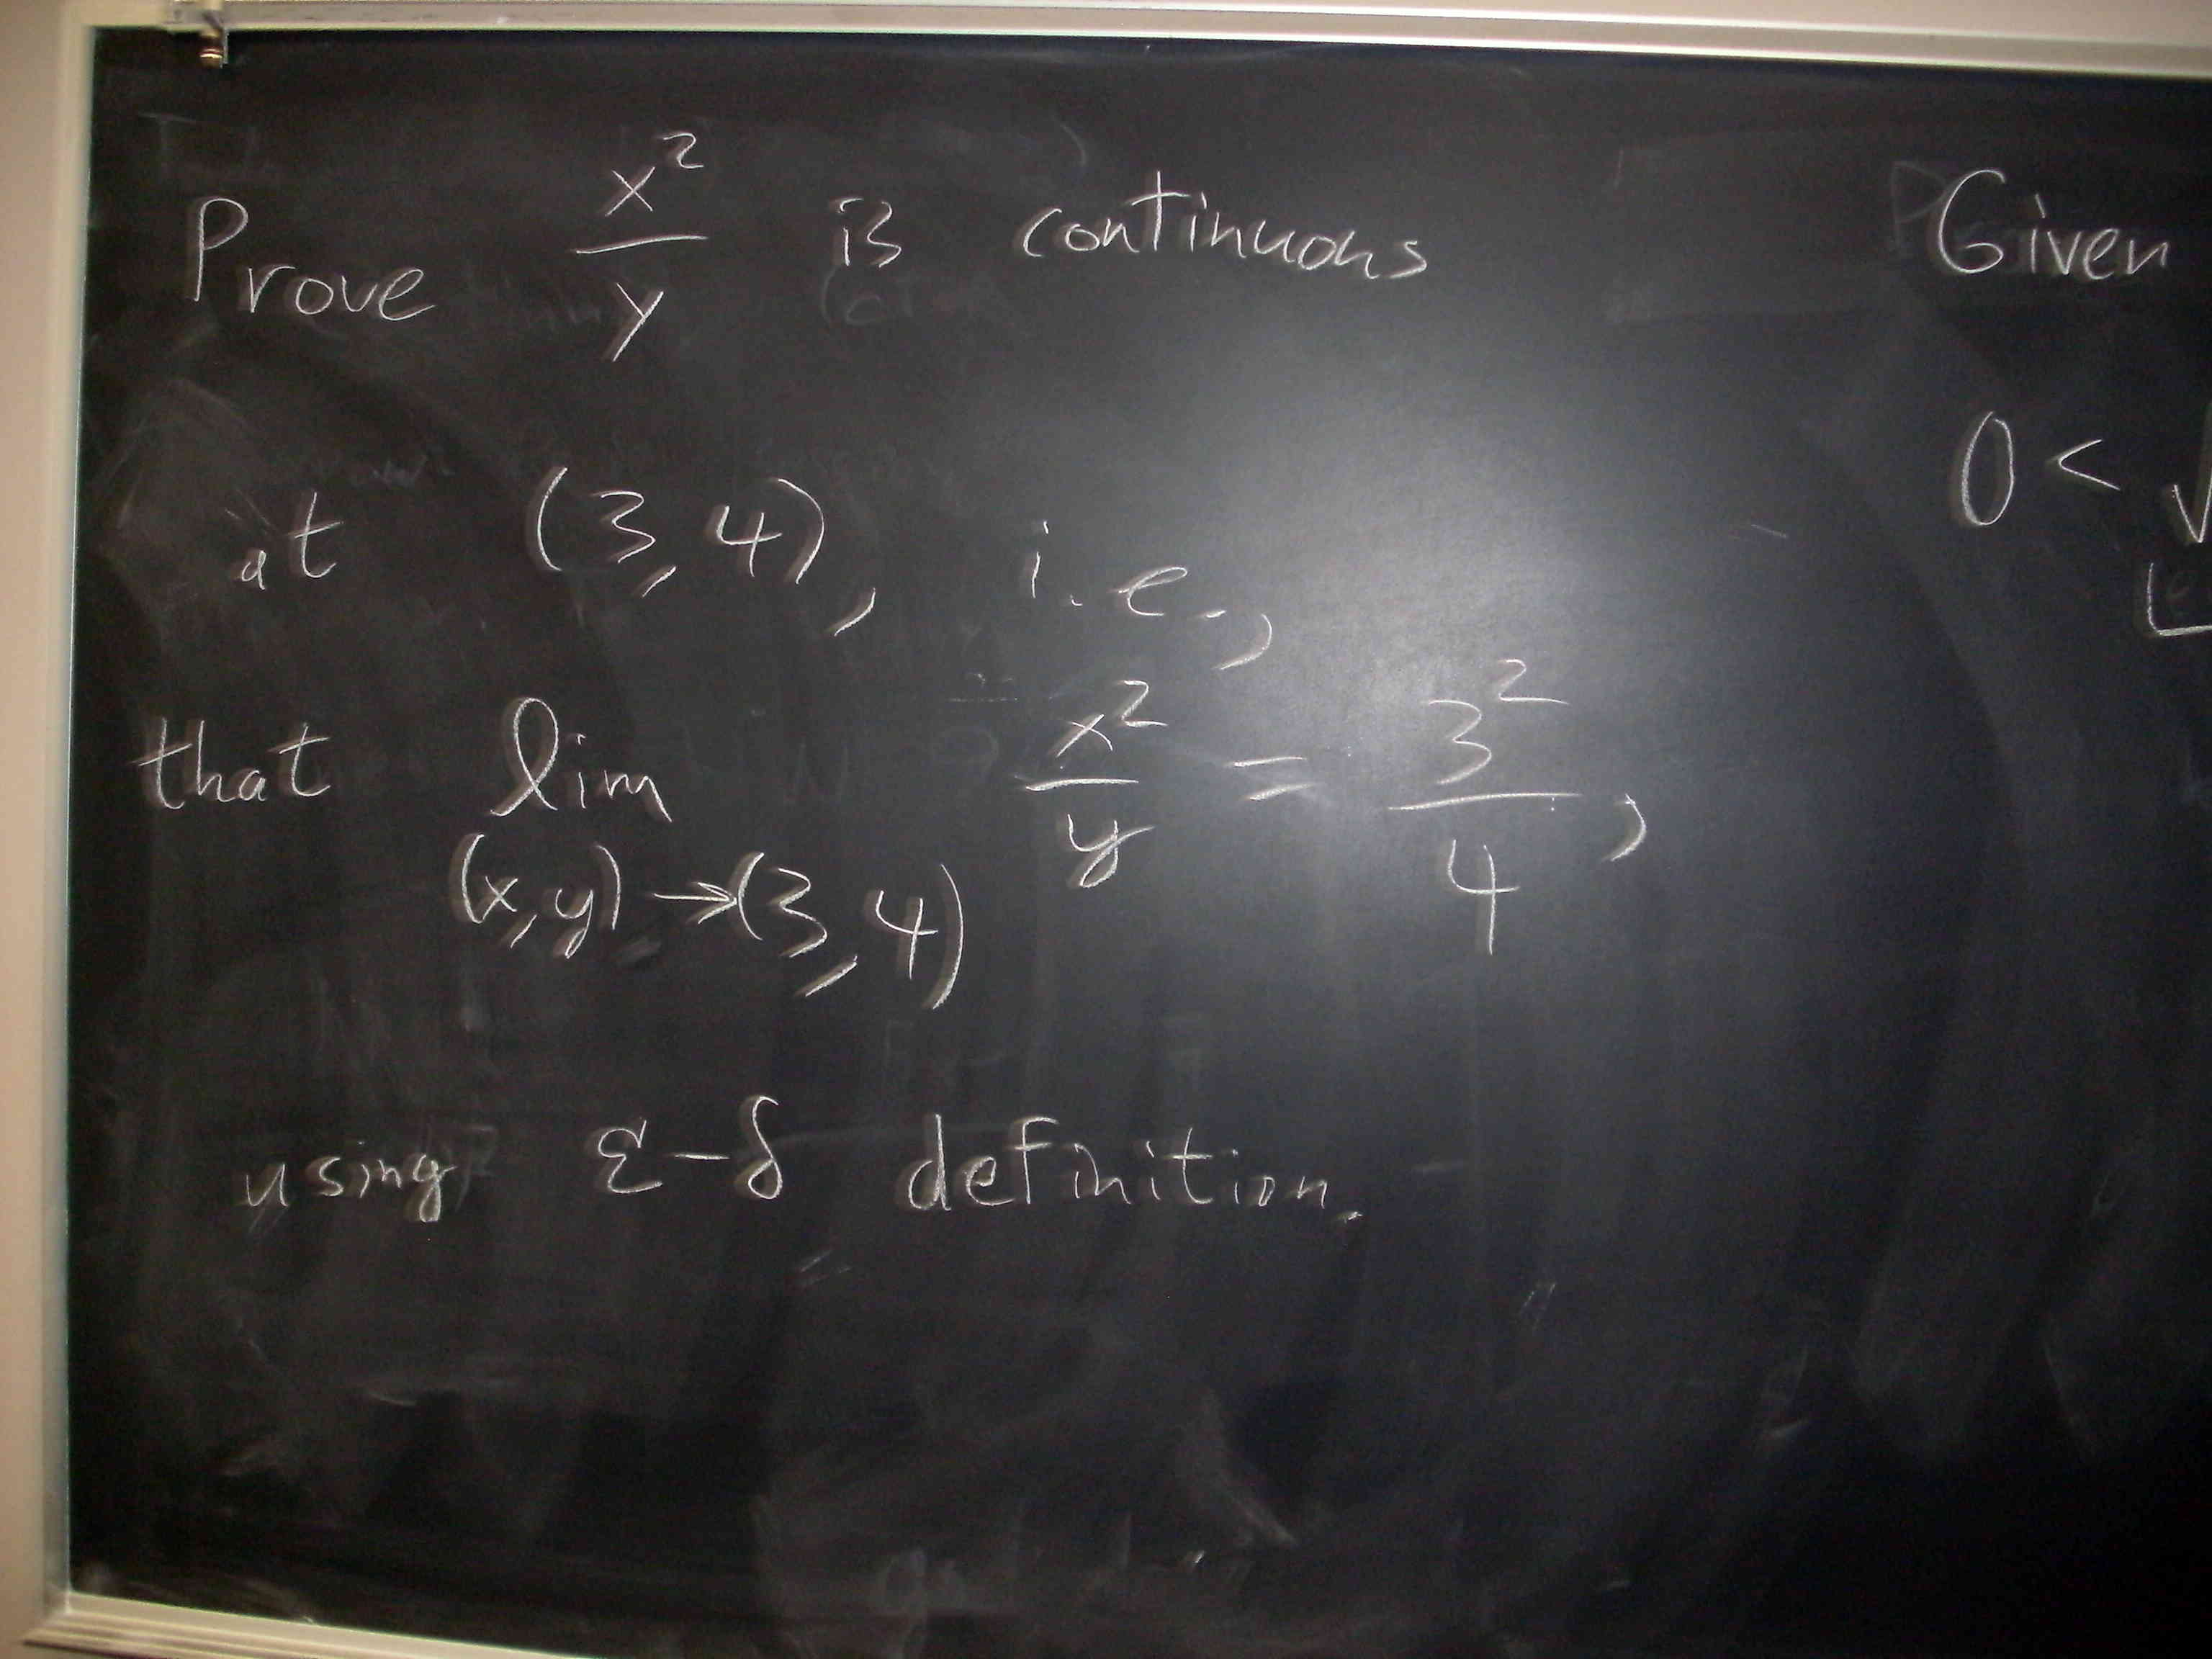 Prove x²/y is continuous
at (3,4), i.e.,
that lim x²/y = 3²/4,
(x,y)→(3,4)
using ε-δ definition.
Given
0 < √